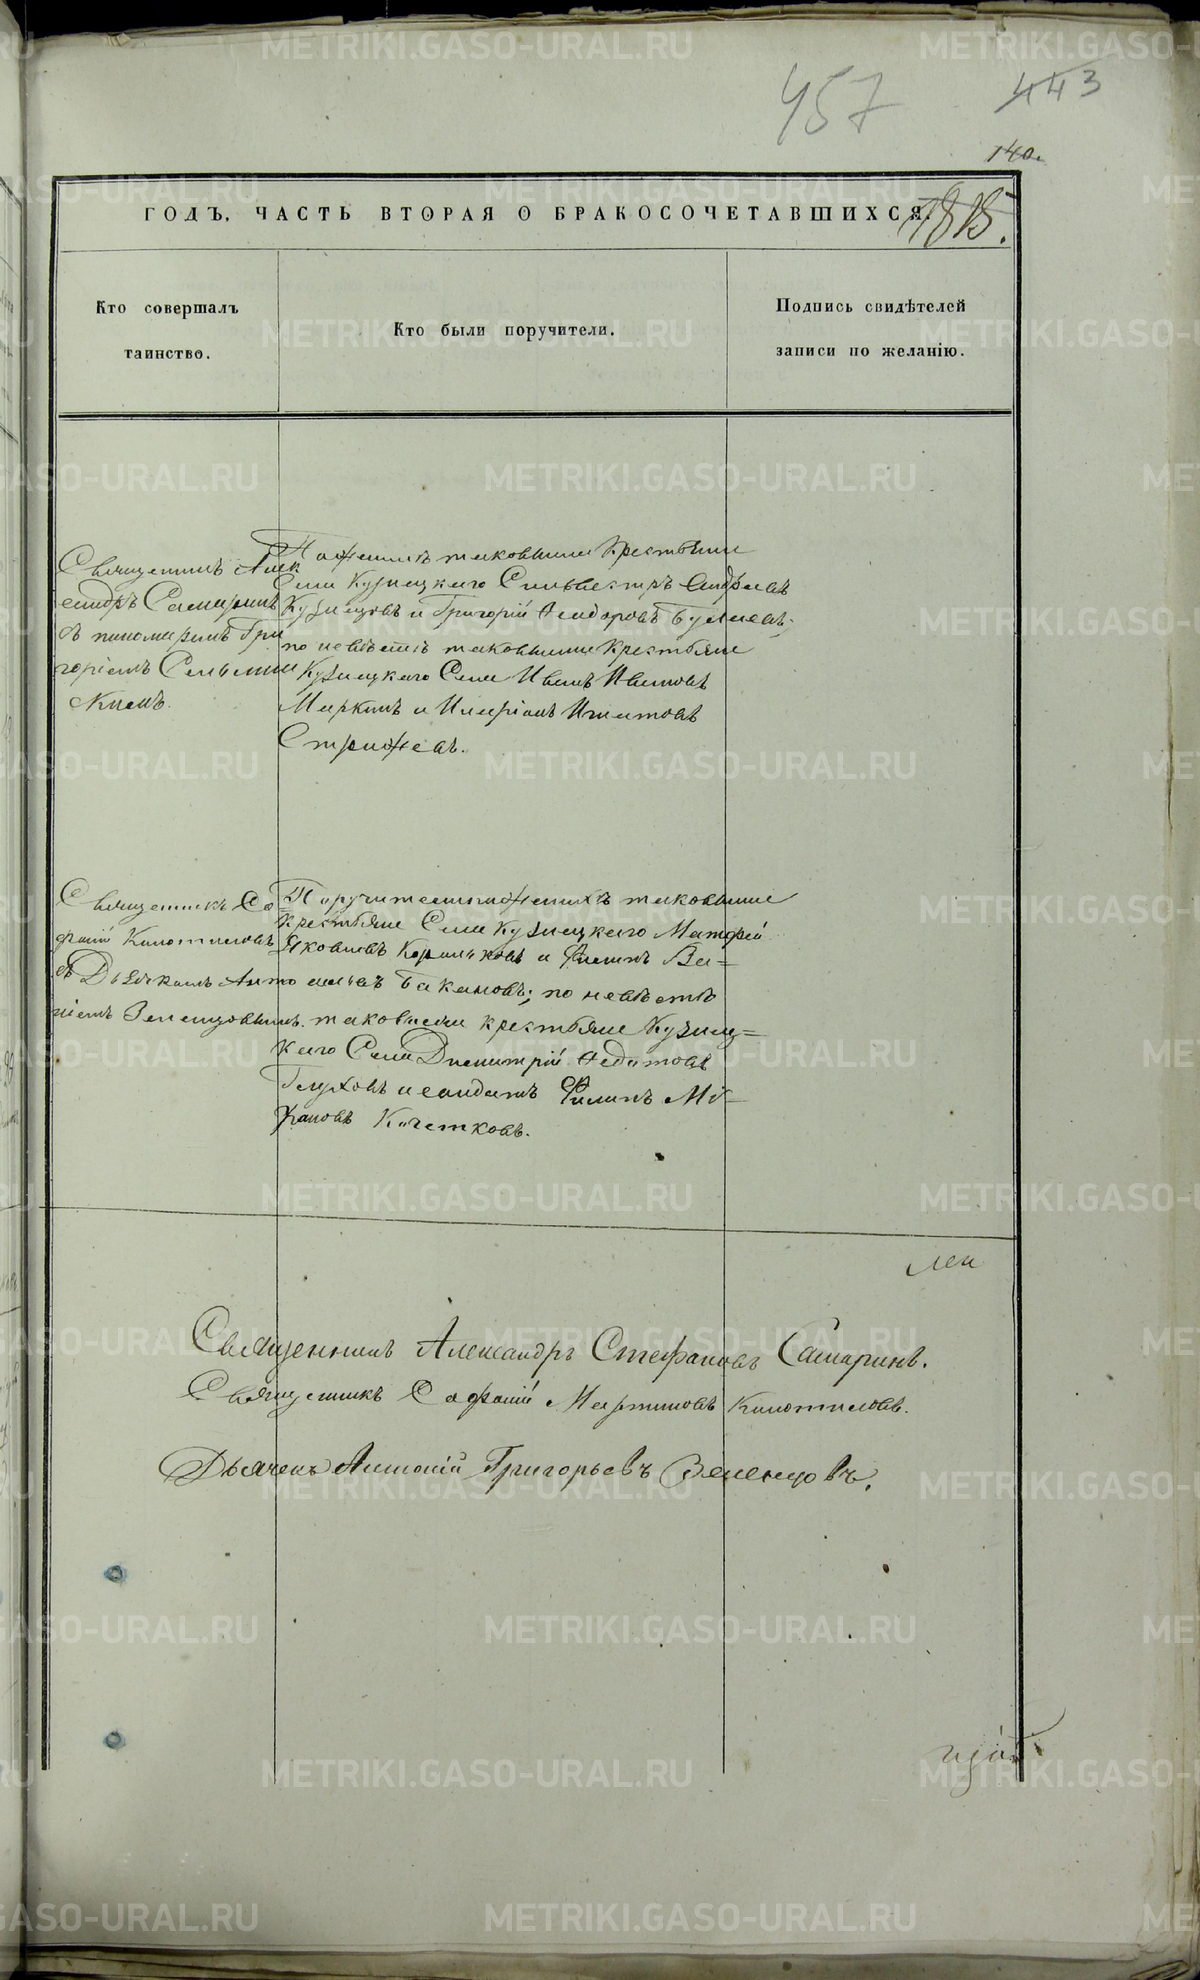 457
443
140.
ГОДЪ. ЧАСТЬ ВТОРАЯ О БРАКОСОЧЕТАВШИХСЯ.
Кто совершалъ
таинство.
Кто были поручители.
Подпись свидѣтелей
записи по желанію.
Священникъ Алек
сандръ Самаринъ
съ пономаремъ Гри
горіемъ
скимъ.
По женихѣ таковыми крестьяне
Села Кузнецкаго Сильвестръ Андреевъ
Кузнецовъ и Григорій Ѳеодоровъ
по невѣстѣ таковыми крестьяне
Кузнецкаго Села Иванъ Ивановъ
Маркинъ и Иларіонъ Игнатовъ
Стрижевъ.
Священникъ Со
фоній Кипотиловъ
съ Дьячкомъ Анто
ніемъ Зеленцовымъ.
Поручители по женихѣ таковыми
крестьяне Села Кузнецкаго Матфей
Яковлевъ Корольковъ и Филипъ Ва=
сильевъ Бакановъ; по невѣстѣ
таковыми крестьяне Кузнец=
каго Села Димитрій Ѳедотовъ
Глуховъ и солдатъ Филипъ
Кочетковъ.
Священникъ Александръ Стефановъ Самаринъ.
Священникъ Софоній Мартиновъ Кипотиловъ.
Дьячекъ Антоній Григорьевъ Зеленцовъ.
METRIKI.GASO-URAL.RU